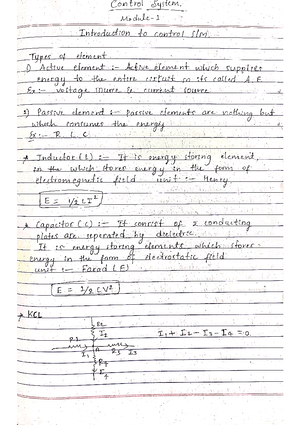 Control System.
Module-1
Introduction to control s/m.
Types of element
1) Active element :- Active element which supplies
energy to the entire circuit so its called A.E
Ex :- voltage source & current source
2) Passive element :- passive elements are nothing but
which consumes the energy
Ex :- R, L, C
* Inductor (L) :- It is energy storing element,
in the which stores energy in the form of
electromagnetic field unit :- Henry
E = 1/2 LI²
* Capacitor (C) :- It consist of 2 conducting
plates are seperated by dielectric.
It is energy storing elements which stores
energy in the form of electrostatic field
unit :- Farad (F)
E = 1/2 CV²
* KCL
R2
I2
I1 + I2 - I3 - I4 = 0
R1
I1
R3 I3
R4
I4